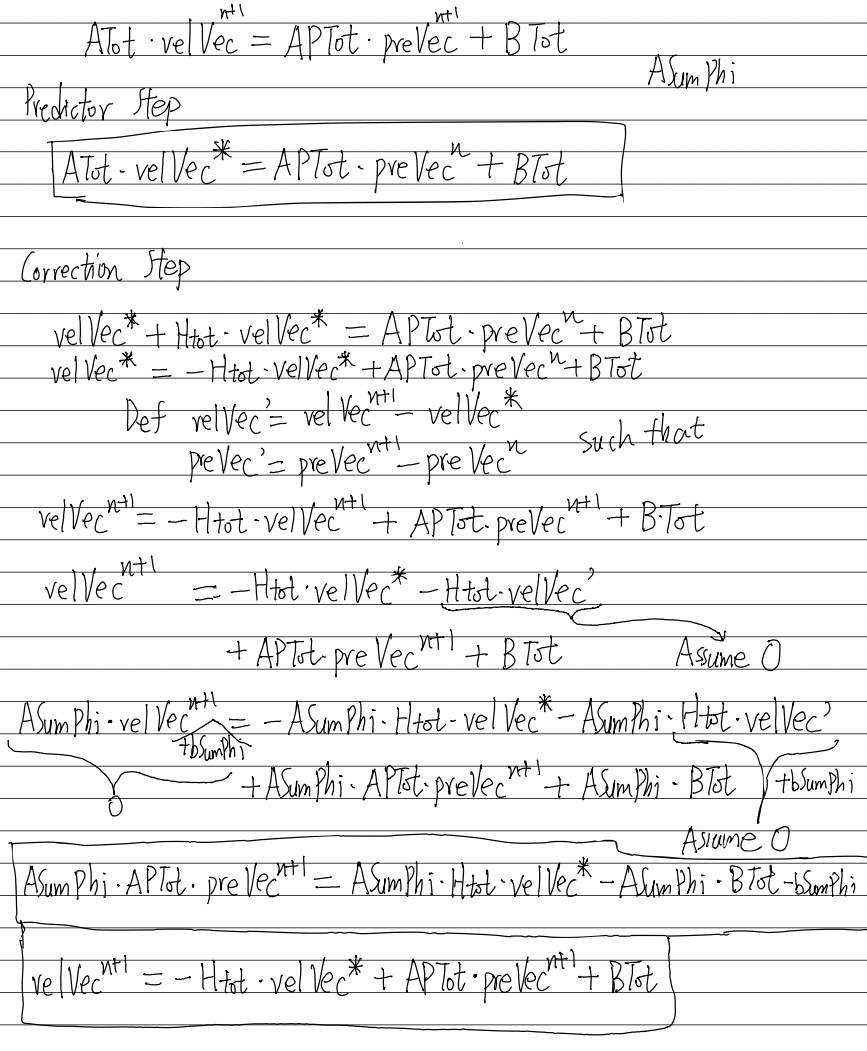 ATot · velVec^{n+1} = APTot · preVec^{n+1} + BTot
ASumPhi
Predictor Step
ATot · velVec^* = APTot · preVec^n + BTot
Correction Step
velVec^* + Htot · velVec^* = APTot · preVec^n + BTot
velVec^* = -Htot · velVec^* + APTot · preVec^n + BTot
Def velVec' = velVec^{n+1} - velVec^*
such that
preVec' = preVec^{n+1} - preVec^n
velVec^{n+1} = -Htot · velVec^{n+1} + APTot · preVec^{n+1} + B·Tot
velVec^{n+1} = -Htot · velVec^* - Htot · velVec'
+ APTot · preVec^{n+1} + BTot
Assume 0
ASumPhi · velVec^{n+1} = -ASumPhi · Htot · velVec^* - ASumPhi · Htot · velVec'
+bSumPhi
+ ASumPhi · APTot · preVec^{n+1} + ASumPhi · BTot
+bSumPhi
0
Assume 0
ASumPhi · APTot · preVec^{n+1} = ASumPhi · Htot · velVec^* - ASumPhi · BTot - bSumPhi
velVec^{n+1} = -Htot · velVec^* + APTot · preVec^{n+1} + BTot